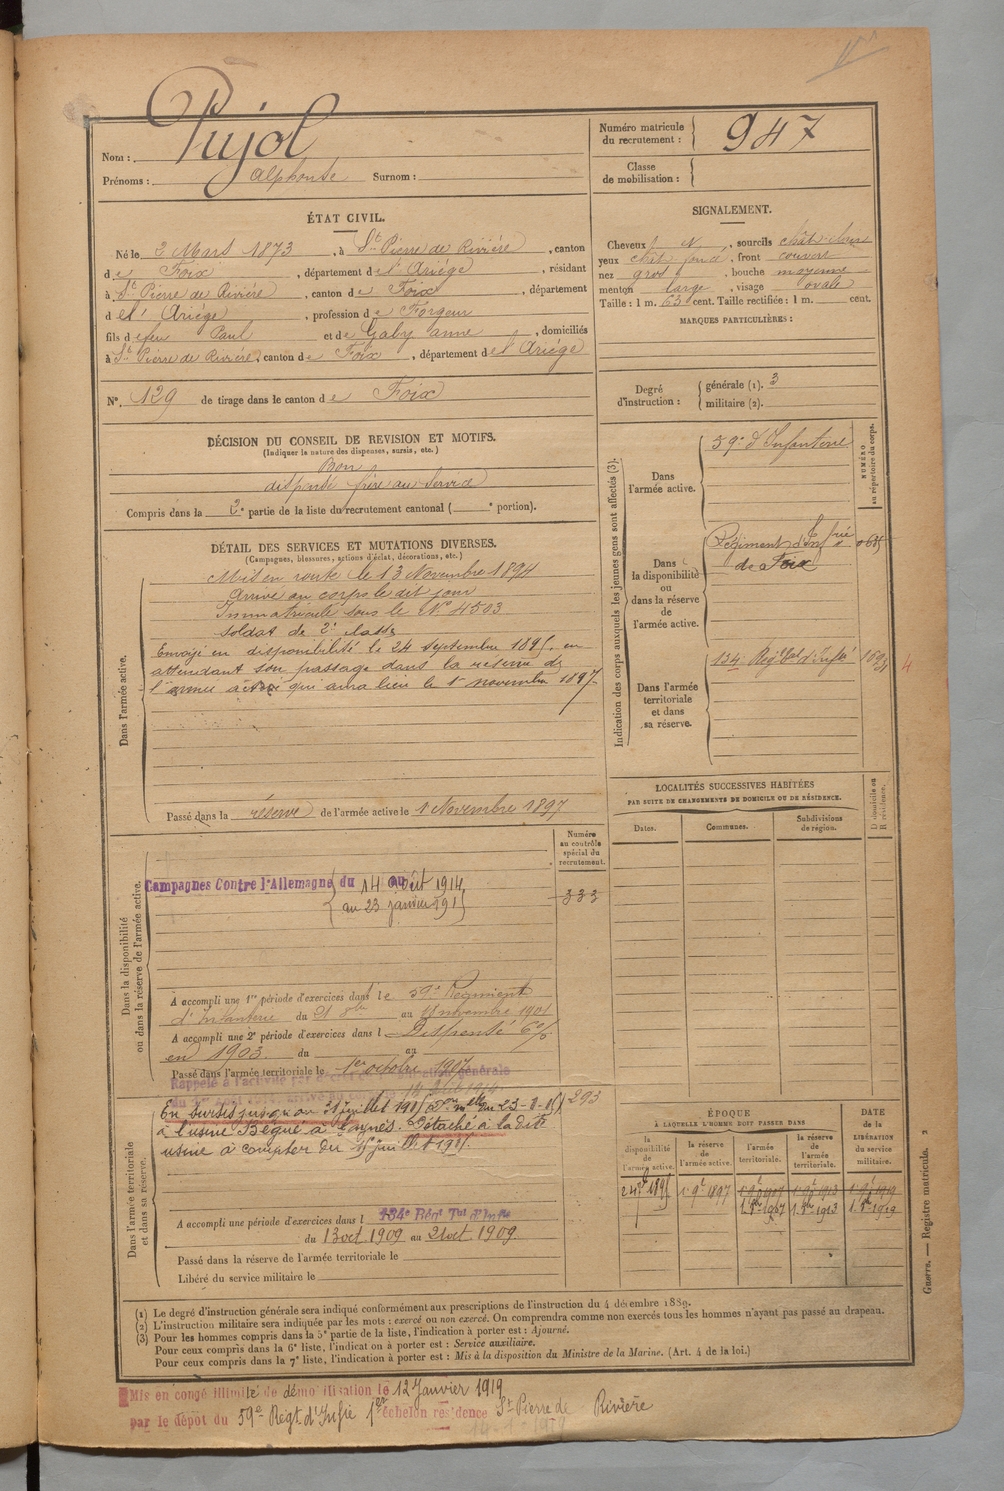 Pujol
Nom :
Prénoms : Alphonse Surnom :
Numéro matricule du recrutement : 947
Classe de mobilisation :
ÉTAT CIVIL.
Né le 2 Mars 1873, à St Pierre de Rivière, canton
de Foix, département de l'Ariège, résidant
à St Pierre de Rivière, canton de Foix, département
de l'Ariège, profession de Forgeur
fils de feu Paul et de Gaby anne, domiciliés
à St Pierre de Rivière, canton de Foix, département de l'Ariège
N° 129 de tirage dans le canton de Foix
SIGNALEMENT.
Cheveux N, sourcils chât-clairs
yeux chât foncé, front couvert
nez gros, bouche moyenne
menton large, visage ovale
Taille : 1 m. 63 cent. Taille rectifiée : 1 m. cent.
MARQUES PARTICULIÈRES :
Degré d'instruction : générale (1). 3
militaire (2).
DÉCISION DU CONSEIL DE REVISION ET MOTIFS.
(Indiquer la nature des dispenses, sursis, etc.)
Bon
dispensé frère au service
Compris dans la 2e partie de la liste du recrutement cantonal ( e portion).
DÉTAIL DES SERVICES ET MUTATIONS DIVERSES.
(Campagnes, blessures, actions d'éclat, décorations, etc.)
Dans l'armée active.
Mis en route le 13 Novembre 1894
Arrivé au corps le dit jour
Immatriculé sous le N° 4503
soldat de 2e classe
Envoyé en disponibilité le 24 septembre 1895, en
attendant son passage dans la réserve de
l'armée active qui aura lieu le 1er novembre 1897
Passé dans la réserve de l'armée active le 1 Novembre 1897
Indication des corps auxquels les jeunes gens sont affectés (3).
NUMÉRO au répertoire du corps.
Dans l'armée active.
59e d'Infanterie
Dans la disponibilité ou dans la réserve de l'armée active.
Régiment d'Infrie
de Foix
Dans l'armée territoriale et dans sa réserve.
134 Régt tal d'Infie
LOCALITÉS SUCCESSIVES HABITÉES
PAR SUITE DE CHANGEMENTS DE DOMICILE OU DE RÉSIDENCE.
Dates. Communes. Subdivisions de région. D domicile ou R résidence.
Dans la disponibilité ou dans la réserve de l'armée active.
Numéro au contrôle spécial du recrutement.
Campagnes Contre l'Allemagne du 14 Août 1914
au 23 janvier 191
333
A accompli une 1re période d'exercices dans le 59e Régiment
d'Infanterie du 21 8bre au novembre 1901
A accompli une 2e période d'exercices dans l Dispensé 6%
en 1903. du au
Passé dans l'armée territoriale le 1er octobre 1907
Dans l'armée territoriale et dans sa réserve.
En sursis jusqu'au 31 juillet 191
293
à l'usine Bègué à Détaché à la dite
usine à compter du 15 juillet
A accompli une période d'exercices dans l 134e Régt Tal d'Infie
du 13 oct. 1909 au 21 oct. 1909
Passé dans la réserve de l'armée territoriale le
Libéré du service militaire le
ÉPOQUE
À LAQUELLE L'HOMME DOIT PASSER DANS
DATE de la LIBÉRATION du service militaire.
la disponibilité de l'armée active. la réserve de l'armée active. l'armée territoriale. la réserve de l'armée territoriale.
24 7bre 1895 1 9e 1897 1 9e 1907 1 9e 1913 1 9e 1919
1.8bre 1907 1.8bre 1913 1.8bre 1919
(1) Le degré d'instruction générale sera indiqué conformément aux prescriptions de l'instruction du 4 décembre 1889.
(2) L'instruction militaire sera indiquée par les mots : exercé ou non exercé. On comprendra comme non exercés tous les hommes n'ayant pas passé au drapeau.
(3) Pour les hommes compris dans la 5e partie de la liste, l'indication à porter est : Ajourné.
Pour ceux compris dans la 6e liste, l'indication à porter est : Service auxiliaire.
Pour ceux compris dans la 7e liste, l'indication à porter est : Mis à la disposition du Ministre de la Marine. (Art. 4 de la loi.)
Guerre. — Registre matricule. 2
Mis en congé illimité de démobilisation le 12 Janvier 1919
par le dépôt du 59e Régt d'Infie 1er échelon résidence St Pierre de Rivière